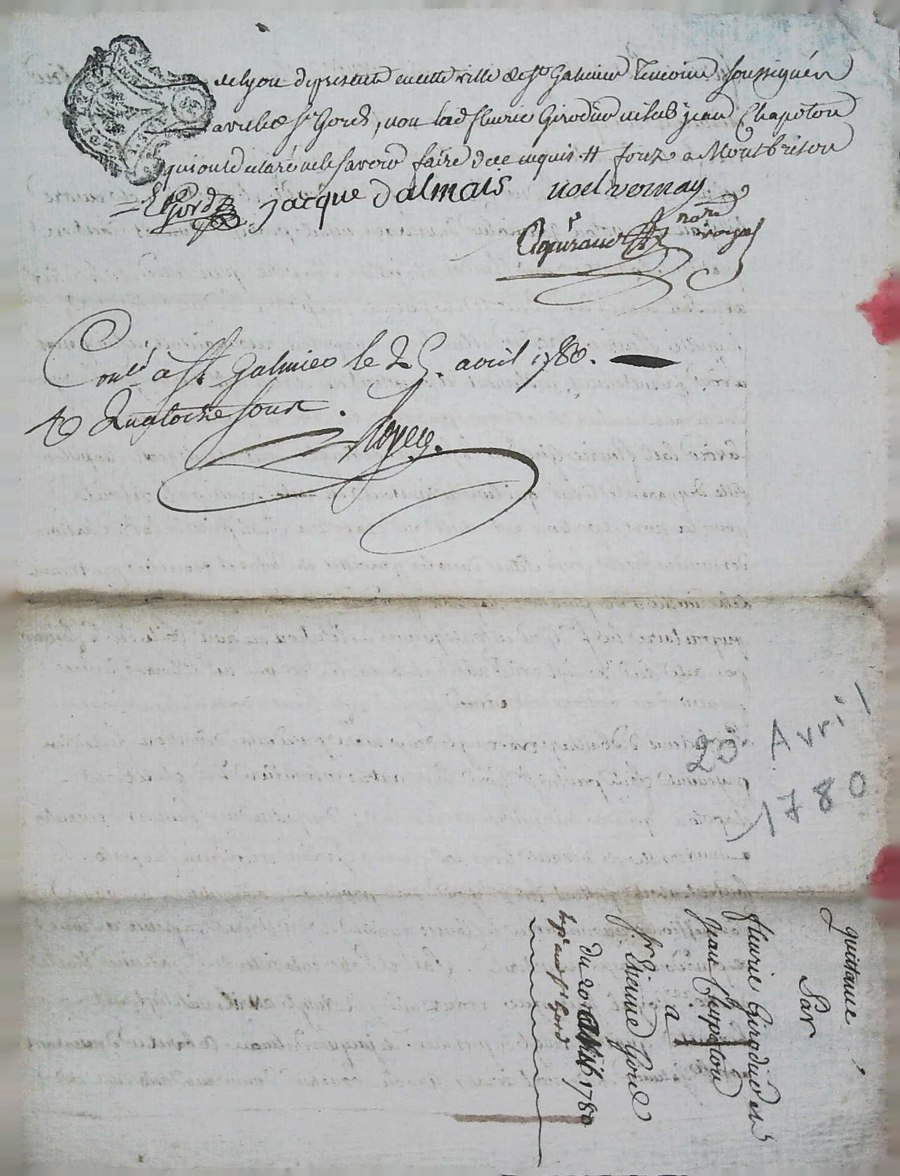 de lyon de présent en cette ville de St Galmier témoins soussignés
avec le Sr Gord, non lad. fleurie Girodier ni led. jean Chapoton
qui ont déclaré ne le savoir faire de ce enquis # fonz a Montbrison
E Gord jacque dalmais noel vernay
nore
royal
Conlé a St Galmier le 25. avril 1780.
R quatorze sous.
25 Avril
1780
quittance
Par
fleurie Girodier et
jean Chapoton
a
Sr. Etienne Gord
du 20 avril 1780